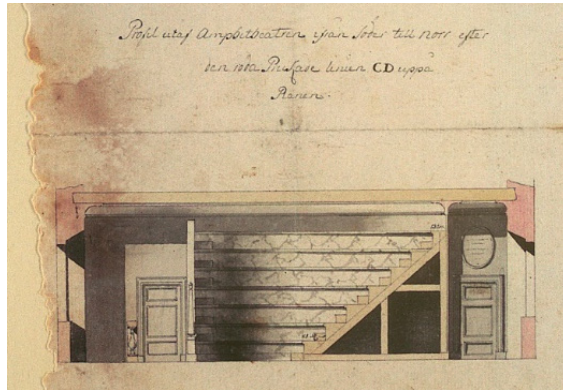 Profil utaf Amphitheatren ifrån Söder till Norr efter
den röda Prickade linien CD uppå
Planen.